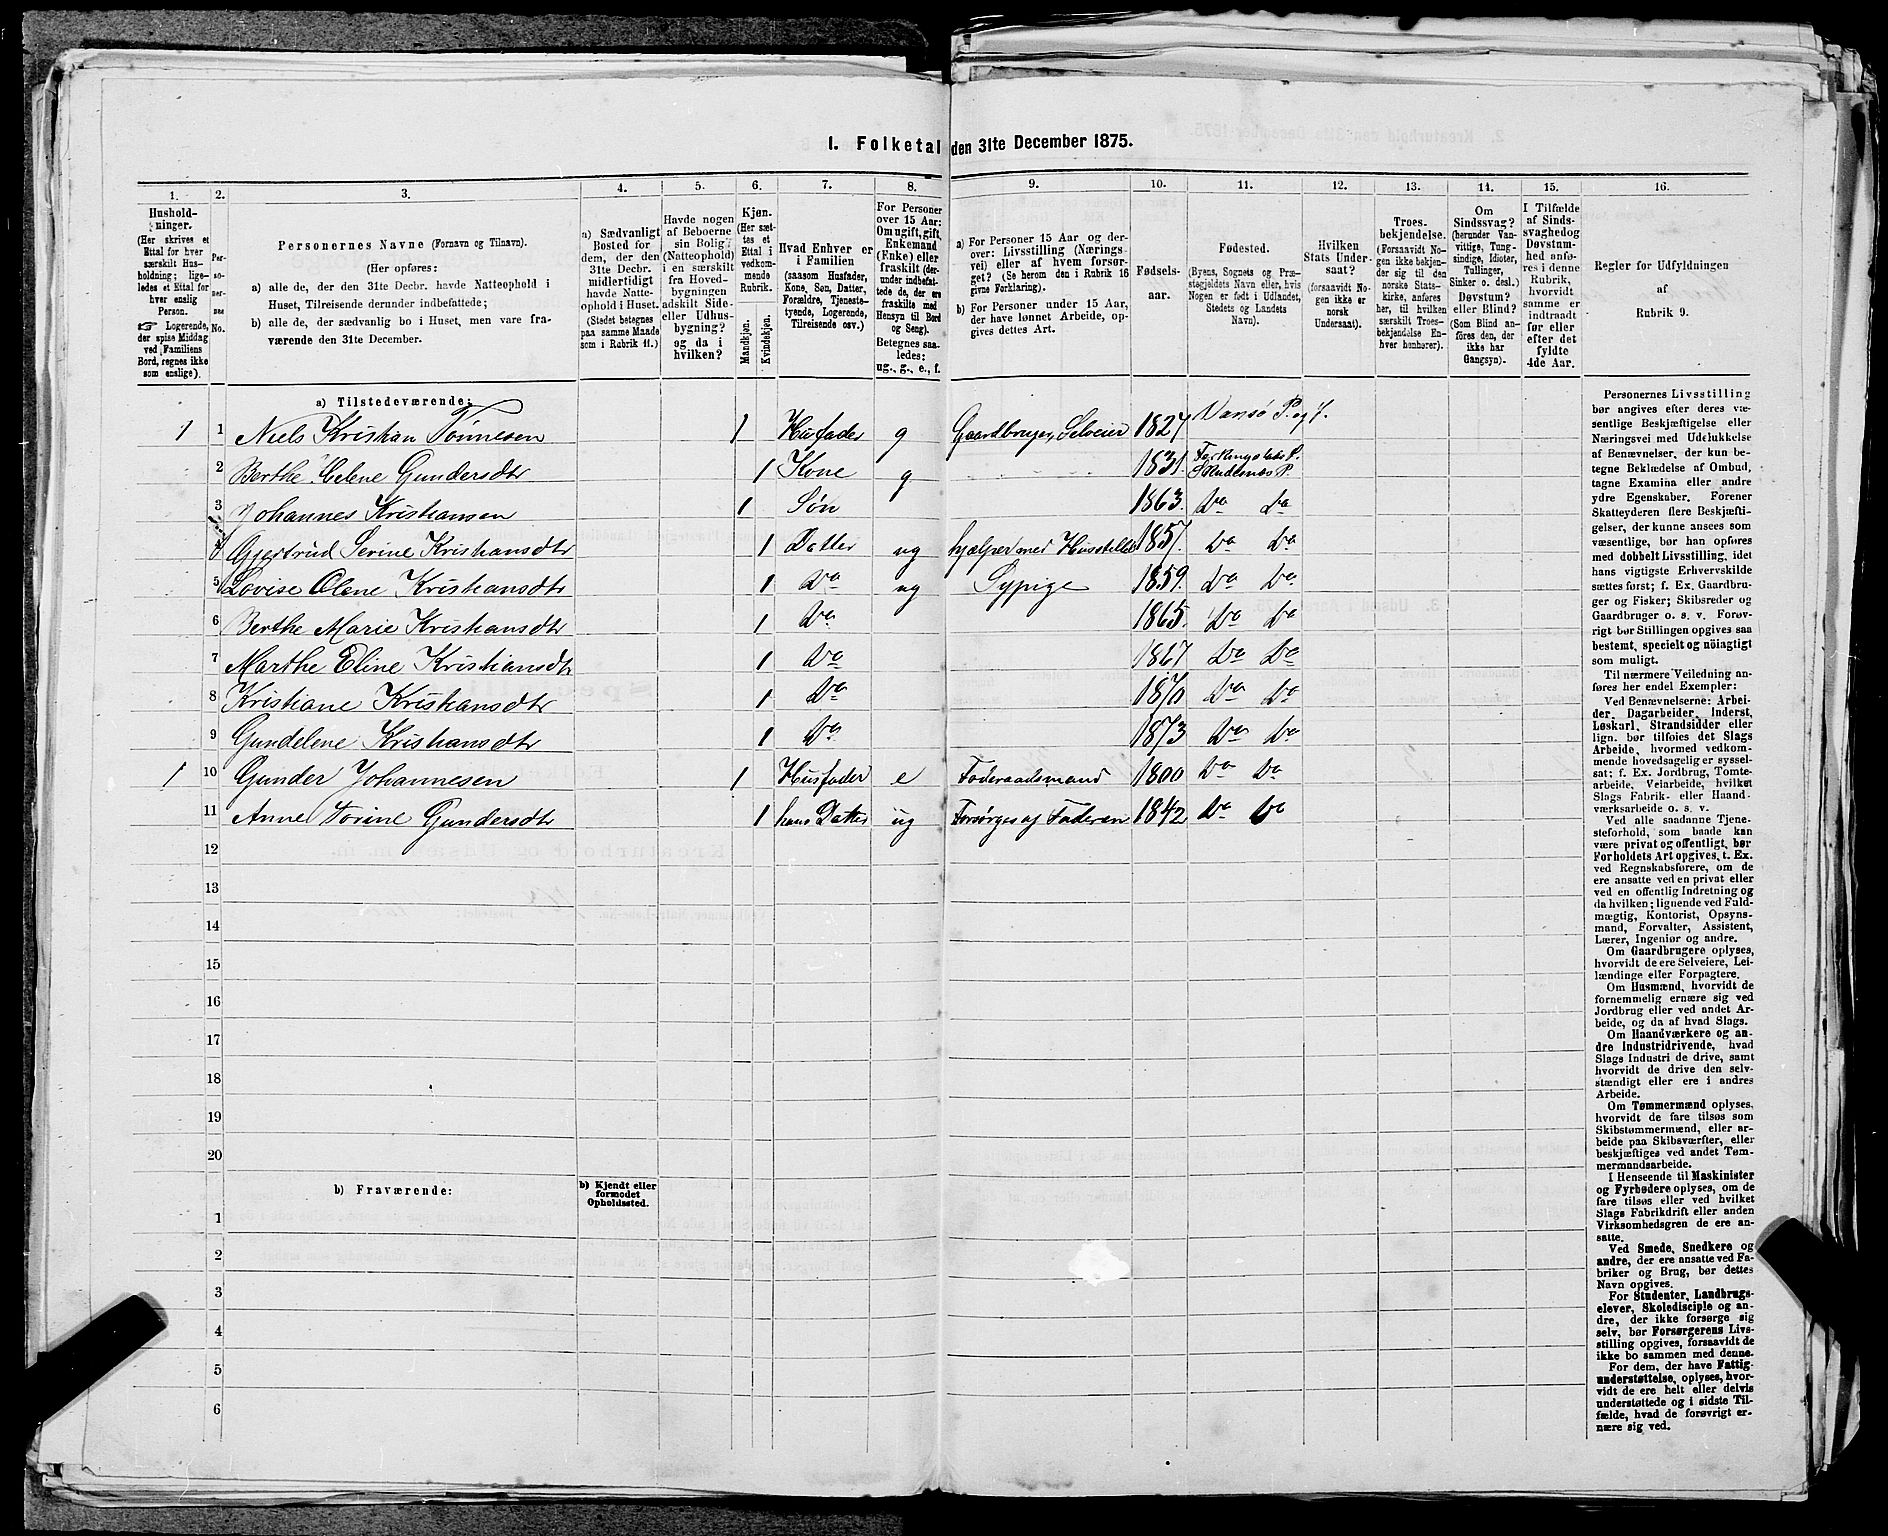 1. Folketal den 31te December 1875.
1. 2. 3. 4. 5. 6. 7. 8. 9. 10. 11. 12. 13. 14. 15. 16.
Hushold-
ninger.
(Her skrives et
Ettal for hver
særskilt Hus-
holdning; lige-
ledes et Ettal for
hver enslig
Person.
☞ Logerende,
der spise Middag
ved Familiens
Bord, regnes ikke
som enslige).
Per-
so-
ner-
nes
No.
Personernes Navne (Fornavn og Tilnavn).
(Her opføres:
a) alle de, der den 31te Decbr. havde Natteophold i
Huset, Tilreisende derunder indbefattede;
b) alle de, der sædvanlig bo i Huset, men vare fra-
værende den 31te December.
a) Sædvanligt
Bosted for
dem, der den
31te Decbr.
midlertidigt
havde Natte-
ophold i Huset.
(Stedet betegnes
paa samme Maade
som i Rubrik 11.)
Havde nogen
af Beboerne
sin Bolig
(Natteophold)
i en særskilt
fra Hoved-
bygningen
adskilt Side-
eller Udhus-
bygning?
og da i
hvilken?
Kjøn.
(Her sæt-
tes et
Ettal i
vedkom-
mende
Rubrik.)
Mandkjøn.
Kvindekjøn.
Hvad Enhver er
i Familien
(saasom Husfader,
Kone, Søn, Datter,
Forældre, Tjeneste-
tyende, Logerende,
Tilreisende osv.)
For Personer
over 15 Aar:
Om ugift, gift,
Enkemand
(Enke) eller
fraskilt (der-
under indbefat-
tede de, der ere
fraskilte med
Hensyn til Bord
og Seng).
Betegnes saa-
ledes:
ug., g., e., f.
a) For Personer 15 Aar og der-
over: Livsstilling (Nærings-
vei) eller af hvem forsør-
get? (Se herom den i Rubrik 16
givne Forklaring).
b) For Personer under 15 Aar,
der have lønnet Arbeide, op-
gives dettes Art.
Fødsels-
aar.
Fødested.
(Byens, Sognets og Præ-
stegjeldets Navn eller, hvis
Nogen er født i Udlandet,
Stedets og Landets
Navn).
Hvilken
Stats Under-
saat?
(forsaavidt No-
gen ikke er
norsk
Undersaat).
Troes-
bekjendelse.
(Forsaavidt No-
gen ikke bekjen-
der sig til den
norske Stats-
kirke, anføres
her, til hvilken
særskilt Troes-
bekjendelse En-
hver henhører).
Om
Sindssvag?
(herunder Van-
vittige, Tung-
sindige, Idioter,
Tullinger,
Sinker o. desl.)
Døvstum?
eller Blind?
(Som Blind an-
føres den, der
ikke har
Gangsyn).
I Tilfælde
af Sinds-
svaghed og
Døvstum-
hed anfø-
res i denne
Rubrik,
hvorvidt
samme er
indtraadt
før eller
efter det
fyldte
4de Aar.
Regler for Udfyldningen
af
Rubrik 9.
a) Tilstedeværende:
1 1 Niels Kristian Tönnesen 1 Husfader g Gaardbruger, Selveier 1827 Vansø P. og
2 Berthe Helene Gundersdtr 1 Kone g 1831. Skudesnæs P.
3 Johannes Kristiansen 1 Søn 1863. Do Do
4 Gjertrud Serine Kristiansdtr 1 Datter ug hjælper med Husstellet 1857. Do Do
5 Lovise Olene Kristiansdtr 1 Do ug Sypige 1859. Do Do
6 Berthe Marie Kristiansdtr 1 Do 1865. Do Do
7 Marthe Eline Kristiansdtr 1 Do 1867 Do Do
8 Kristiane Kristiansdtr 1 Do 1870 Do Do
9 Gundelene Kristiansdtr 1 Do 1873 Do Do
1 10 Gunder Johannesen 1 Husfader e Føderaadsmand 1800 Do Do
11 Anne Torine Gundersdtr 1 hans Datter ug Forsørges af Faderen 1842 Do Do
12
13
14
15
16
17
18
19
20
b) Fraværende:
b) Kjendt eller
formodet
Opholdssted.
1
2
3
4
5
6
Personernes Livsstilling
bør angives efter deres væ-
sentlige Beskjæftigelse eller
Næringsvei med Udelukkelse
af Benævnelser, der kun be-
tegne Beklædelse af Ombud,
tagne Examina eller andre
ydre Egenskaber. Forener
Skatteyderen flere Beskjæfti-
gelser, der kunne ansees som
væsentlige, bør han opføres
med dobbelt Livsstilling, idet
hans vigtigste Erhvervskilde
sættes først; f. Ex. Gaardbru-
ger og Fisker; Skibsreder og
Gaardbruger o. s. v. Forøv-
rigt bør Stillingen opgives saa
bestemt, specielt og nöiagtigt
som muligt.
Til nærmere Veiledning an-
føres her endel Exempler:
Ved Benævnelserne: Arbei-
der, Dagarbeider, Inderst,
Løskarl, Strandsidder eller
lign. bør tilføies det Slags
Arbeide, hvormed vedkom-
mende hovedsagelig er syssel-
sat; f. Ex. Jordbrug, Tomte-
arbeide, Veiarbeide, hvilket
Slags Fabrik- eller Haand-
værksarbeide o. s. v.
Ved alle saadanne Tjene-
steforhold, som baade kan
være privat og offentligt, bør
Forholdets Art opgives, t. Ex.
ved Regnskabsførere, om de
ere ansatte ved en privat eller
ved en offentlig Indretning og
da hvilken; lignende ved Fuld-
mægtig, Kontorist, Opsyns-
mand, Forvalter, Assistent,
Lærer, Ingeniør og andre.
Om Gaardbrugere oplyses,
hvorvidt de ere Selveiere, Lei-
lændinge eller Forpagtere.
Om Husmænd, hvorvidt de
fornemmelig ernære sig ved
Jordbrug eller ved andet Ar-
beide, og da af hvad Slags.
Om Haandværkere og an-
dre Industridrivende, hvad
Slags Industri de drive, samt
hvorvidt de drive den selv-
stændigt eller ere i andres
Arbeide.
Om Tømmermænd oplyses,
hvorvidt de fare tilsøs som
Skibstømmermænd, eller ar-
beide paa Skibsværfter, eller
beskjæftiges ved andet Tøm-
mermandsarbeide.
I Henseende til Maskinister
og Fyrbødere oplyses, om de
fare tilsøs eller ved hvilket
Slags Fabrikdrift eller anden
Virksomhedsgren de ere an-
satte.
Ved Smede, Snedkere og
andre, der ere ansatte ved Fa-
briker og Brug, bør dettes
Navn opgives.
For Studenter, Landbrugs-
elever, Skoledisciple og an-
dre, der ikke forsørge sig
selv, bør Forsørgerens Livs-
stilling opgives, forsaavidt de
ikke bo sammen med denne.
For dem, der have Fattig-
understøttelse, oplyses, hvor-
vidt de ere helt eller delvis
understøttede og i sidste Til-
fælde, hvad de forøvrigt er-
nære sig ved.